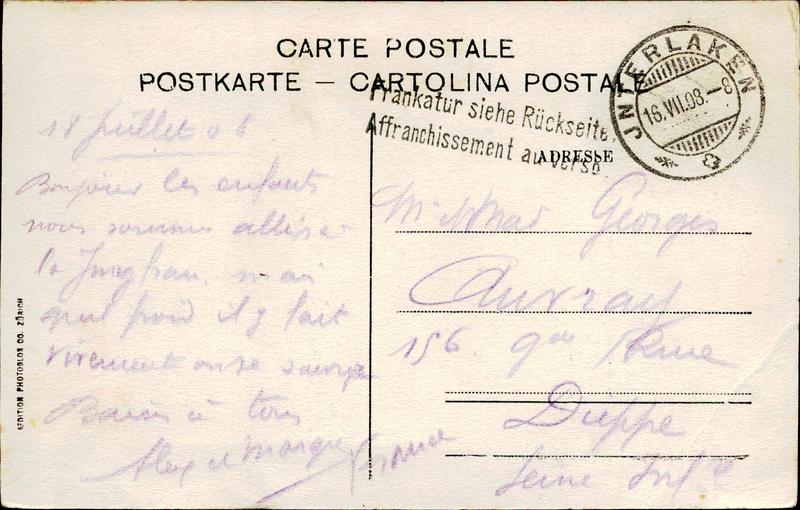 CARTE POSTALE
POSTKARTE — CARTOLINA POSTALE
JNTERLAKEN
16.VII.08.–8
Frankatur siehe Rückseite.
Affranchissement au verso.
ADRESSE
18 Juillet 08
Bonjour les enfants
nous sommes allés à
la Jungfrau mais
quel froid il y fait
vivement on se sauve
Baisers à tous
Alex et
Georges
Auvray
156
Dieppe
Seine Infre
France
EDITION PHOTOGLOB CO. ZÜRICH